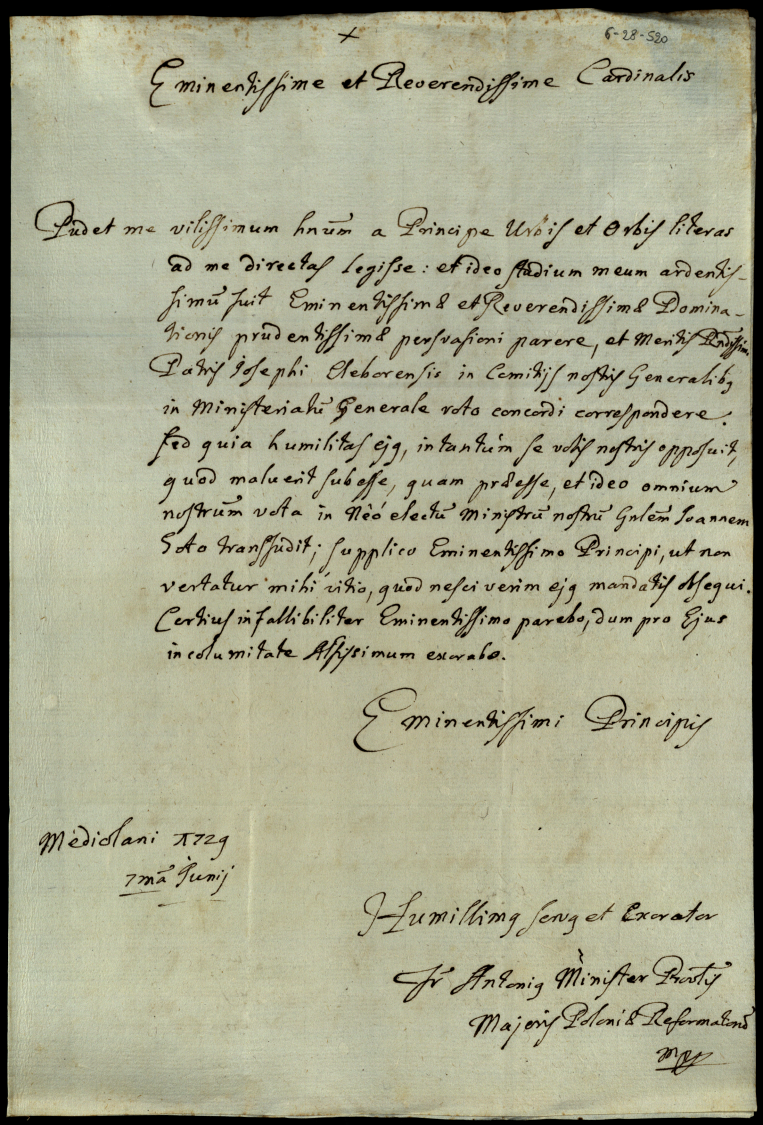 +
6-28-520
Eminentissime et Reverendissime Cardinalis
Pudet me vilissimum hnūm a Principe Urbis et Orbis literas
ad me directas legisse: et ideo studium meum ardentis-
simū fuit Eminentissimæ et Reverendissimæ Domina-
tionis prudentissimæ persvasioni parere, et Meritis Rndissimi
Patris Josephi Eleborensis in Comitijs nostris Generalibq
in Ministeriatū Generale voto concordi correspondere.
sed quia humilitas ejq, in tantum se votis nostris opposuit,
quod maluerit subesse, quam præesse, et ideo omnium
nostrūm vota in Nēō electū Ministrū nostrū Gnlēm Joannem
Soto transfudit; supplico Eminentissimo Principi, ut non
vertatur mihi vitio, quod nesciverim ejq mandatis obsequi.
Certius infallibiliter Eminentissimo parebo, dum pro Ejus
incolumitate Altissimum exorabo.
Eminentissimi Principis
Mediolani 1729
7mā Junij
Humillimq servq et Exorator
Fr Antoniq Minister Provlis
Majoris Poloniæ Reformatorū
mpp